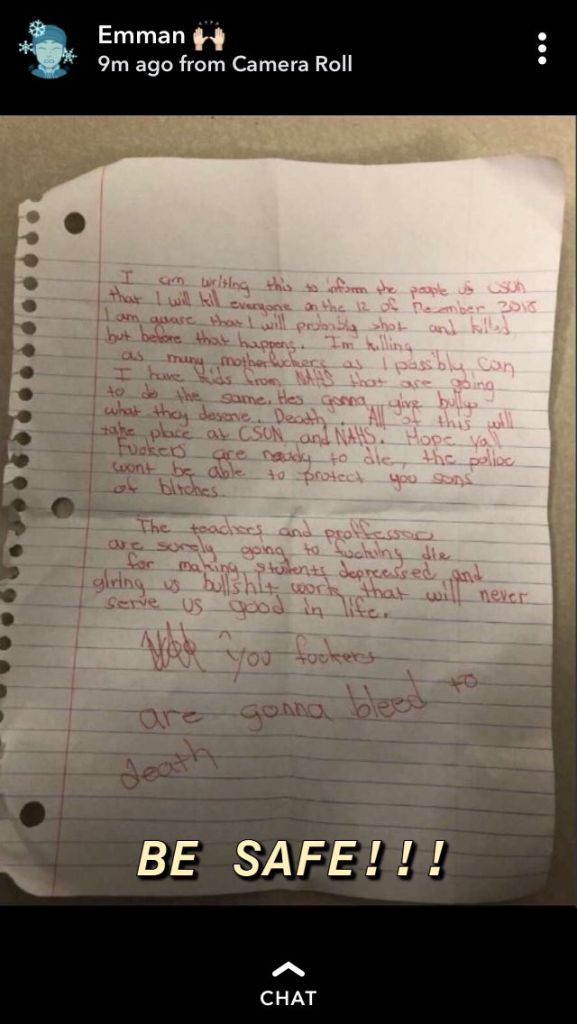 Emman 🙌🏻
9m ago from Camera Roll
I am writing this to inform the people us CSUN
that I will kill everyone on the 12 of December 2018
I am aware that I will probably shot and killed
but before that happens. I'm killing
as many motherfuckers as I possbly can
I have kids from NAHS that are going
to do the same. Hes gonna give bullys
what they deserve.. Death. All of this will
take place at CSUN and NAHS. Hope yall
Fuckers are ready to die, the police
wont be able to protect you sons
of bitches.
The teachers and proffessor
are surely going to fuching die
for making students depressed and
giving us bullshit work that will never
serve us good in life.
You fuckers
are gonna bleed to
death
BE SAFE!!!
CHAT